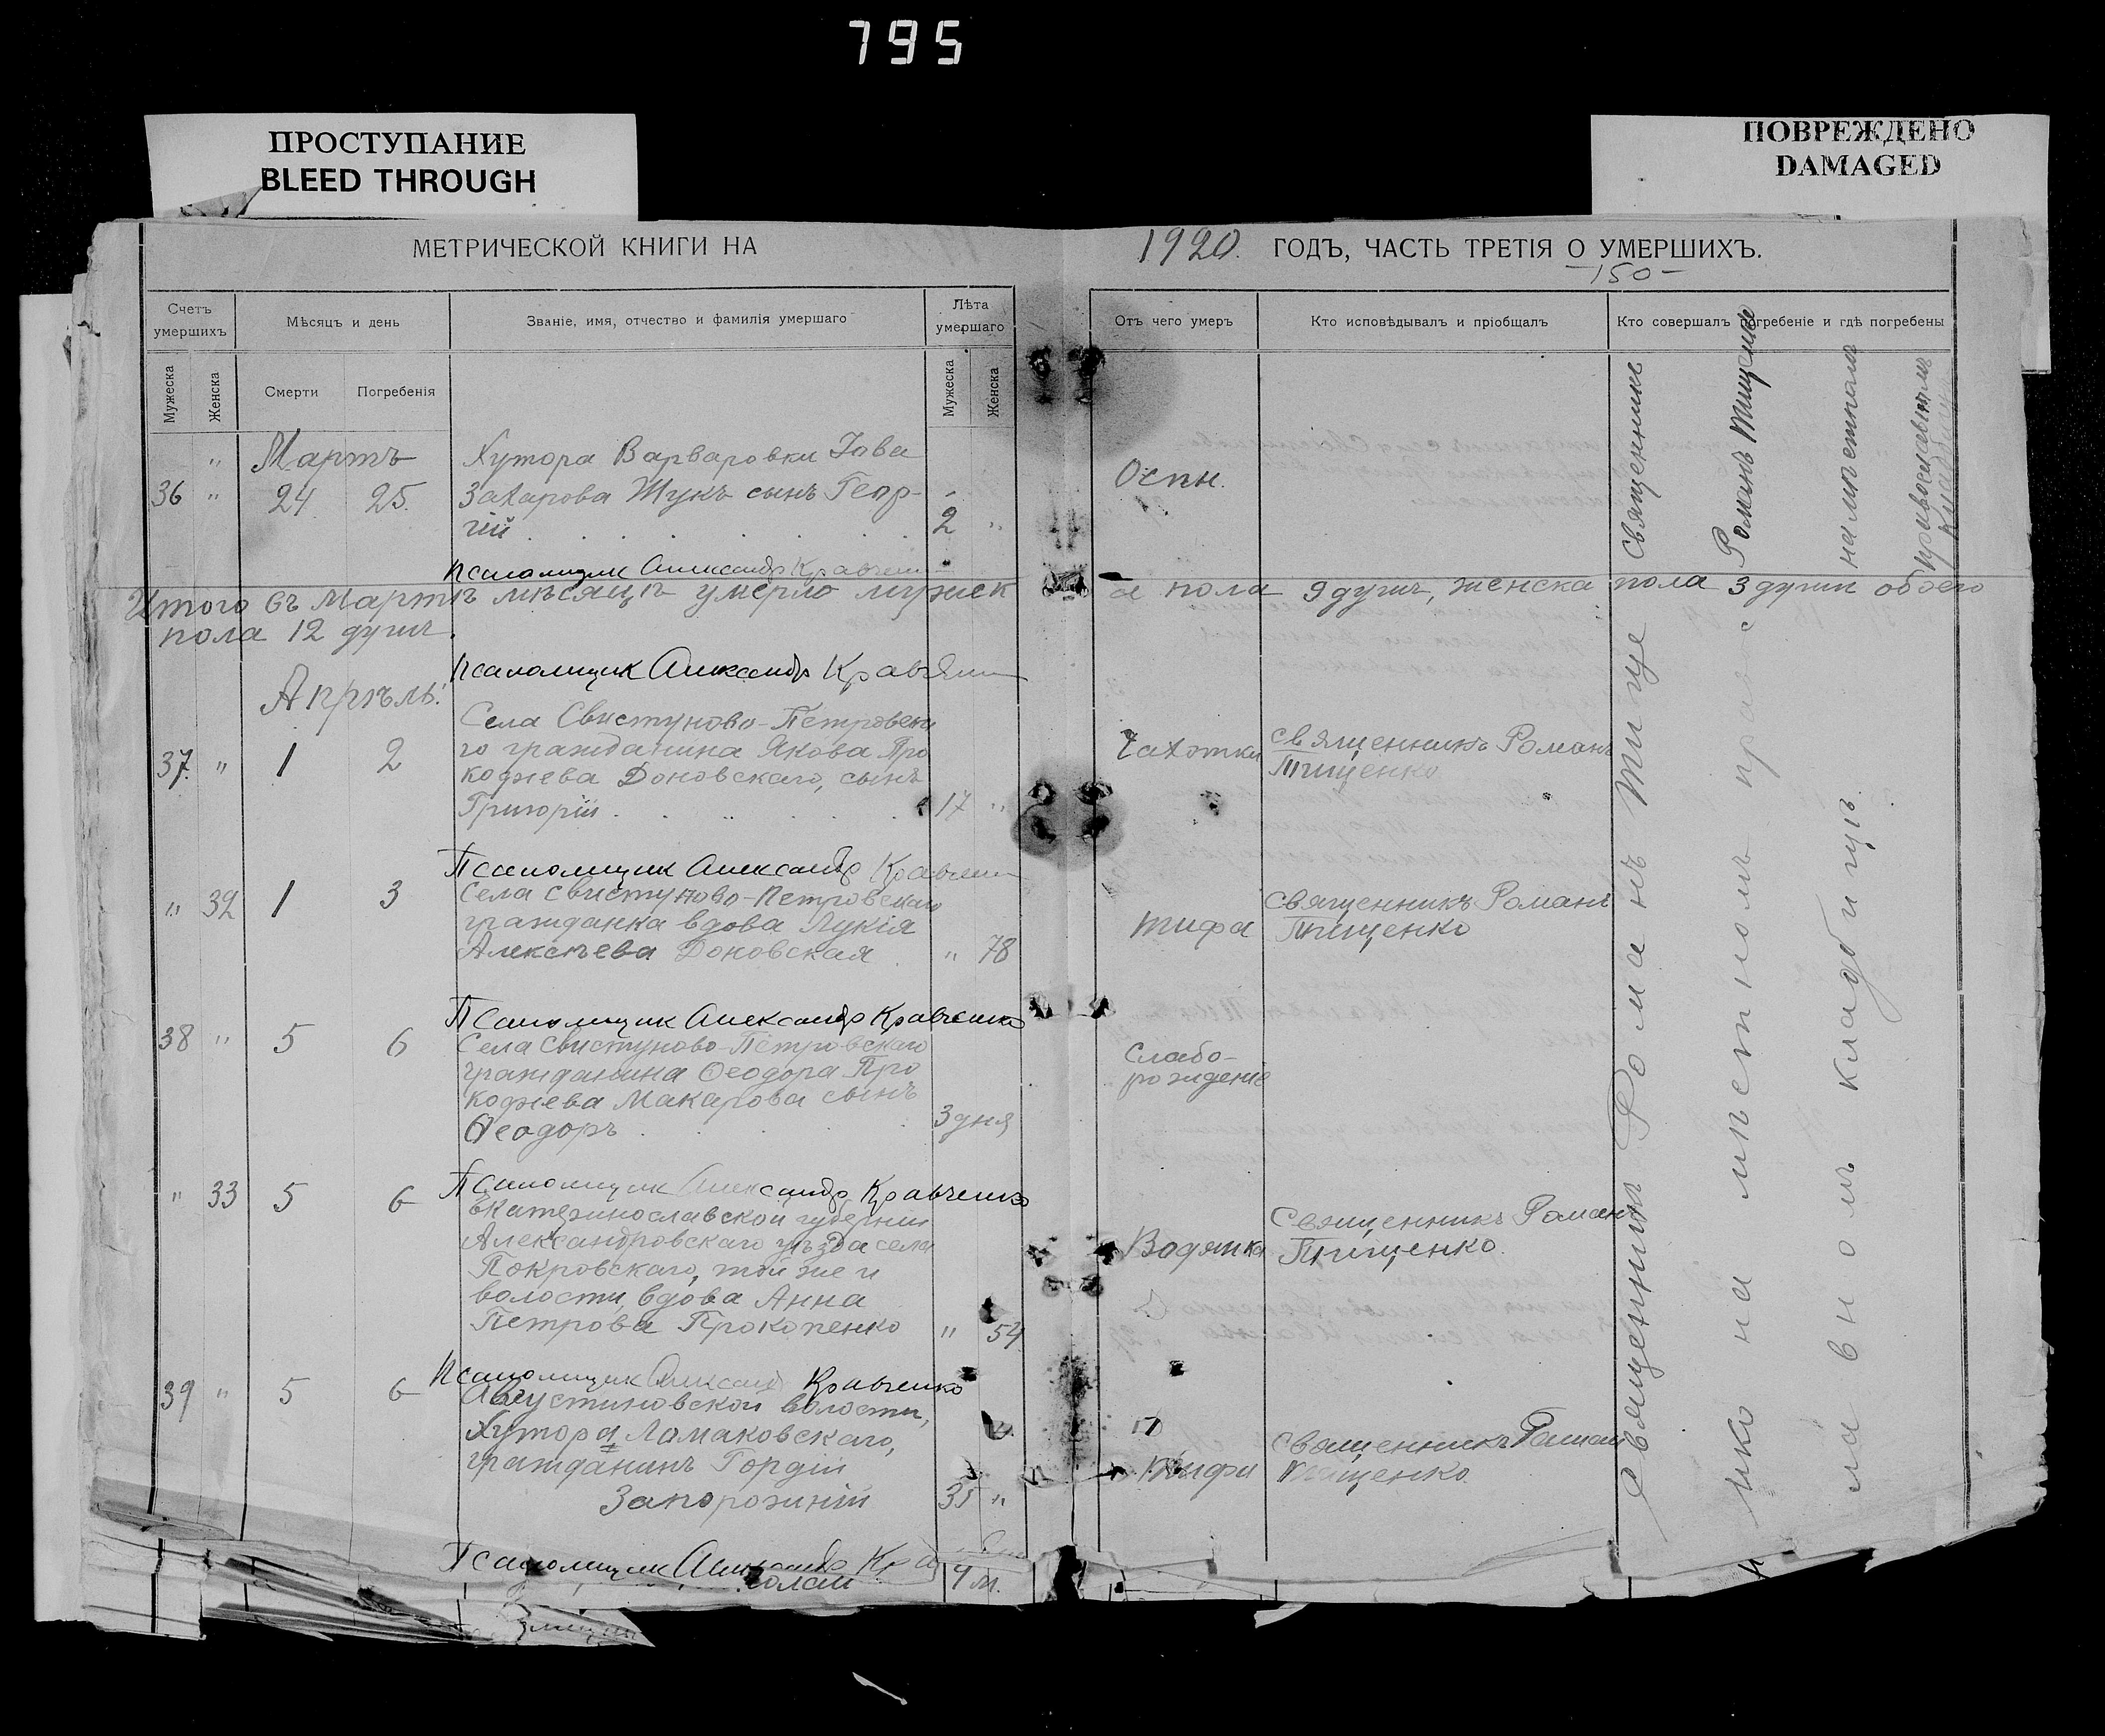 795
ПРОСТУПАНИЕ
BLEED THROUGH
ПОВРЕЖДЕНО
DAMAGED
МЕТРИЧЕСКОЙ КНИГИ НА 1920. ГОДЪ, ЧАСТЬ ТРЕТІЯ О УМЕРШИХЪ.
-150-
Счетъ умершихъ
Мѣсяцъ и день
Званіе, имя, отчество и фамилія умершаго
Лѣта умершаго
Отъ чего умеръ
Кто исповѣдывалъ и пріобщалъ
Кто совершалъ погребеніе и гдѣ погребены
Мужеска
Женска
Смерти
Погребенія
Мужеска
Женска
Мартъ
Хутора Варваровки Іова
36 " 24 25. Захарова Жукъ сынъ Геор-
гій 2 "
Оспы.
Псаломщик Александр Кравченко
Итого въ Мартѣ мѣсяцѣ умерло мужеска пола 9 душъ, женска пола 3 души обоего
пола 12 душъ.
Псаломщик Александр Кравченко
Апрѣль.
Села Свистуново-Петровска
37. " 1 2 го гражданина Якова Про
кофіева Доновскаго, сынъ
Григорій 17 "
Чахотки
Священникъ Романъ
Тищенко
Псаломщик Александр Кравченко
" 32 1 3 Села Свистуново-Петровскаго
гражданка вдова Лукія
Алексѣева Доновская " 78
Тифа
Священникъ Романъ
Тищенко
Псаломщик Александр Кравченко
38 " 5 6 Села Свистуново-Петровскаго
гражданина Ѳеодора Про
кофіева Макарова сынъ
Ѳеодоръ 3 дня
Слабо-
рожденіе
Псаломщик Александр Кравченко
" 33 5 6 Екатеринославской губерніи
Александровскаго уѣзда села
Покровскаго, той же и
волости, вдова Анна
Петрова Прокопенко " 54
Водянка
Священникъ Романъ
Тищенко.
Псаломщик Александр Кравченко
39 " 5 6 Августиновской волости,
Хутора Ломаковскаго,
гражданинъ Гордій
Запорожній 35 "
Тифа
Священникъ Роман
Тищенко
Псаломщик Александр
9 м.
Священникъ
Романъ Тищенко
на мѣстномъ
православномъ
кладбищ
Священникъ Романъ Тище
нко на мѣстномъ правос
лавномъ кладбищѣ.